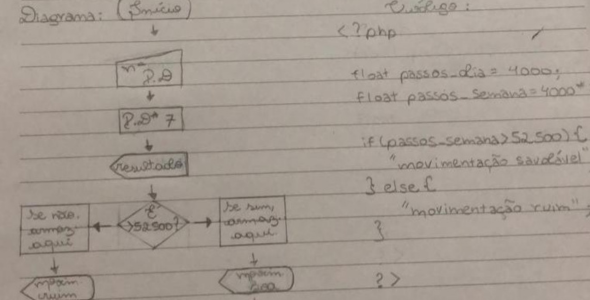 Diagrama: (Início)
Código:
<?php
nº
P.D
P.D* 7
resultado
É
>52500?
se não,
armaz
aqui
se sim,
armaz
aqui
imprim
ruim
imprim
boa
float passos_dia = 4000;
float passos_semana = 4000*
if (passos_semana > 52500) {
"movimentação saudável"
} else {
"movimentação ruim";
}
?>